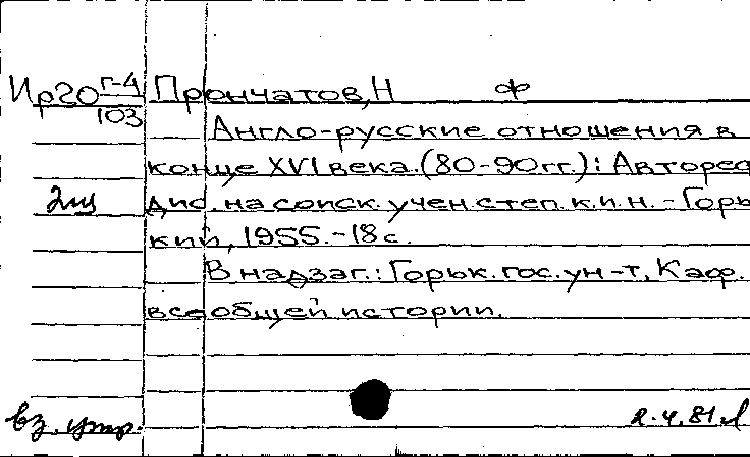 Ир20 г-4/103 Прончатов, Н ф
Англо-русские отношения в
конце XVI века. (80-90гг.): Авторед
дис. на соиск. учен. степ. к.и.н. - Горь
2щ
кий, 1955. - 18с.
В надзаг.: Горьк. гос. ун-т, Каф.
всеобщей истории.
вз. утр. 2.4.81